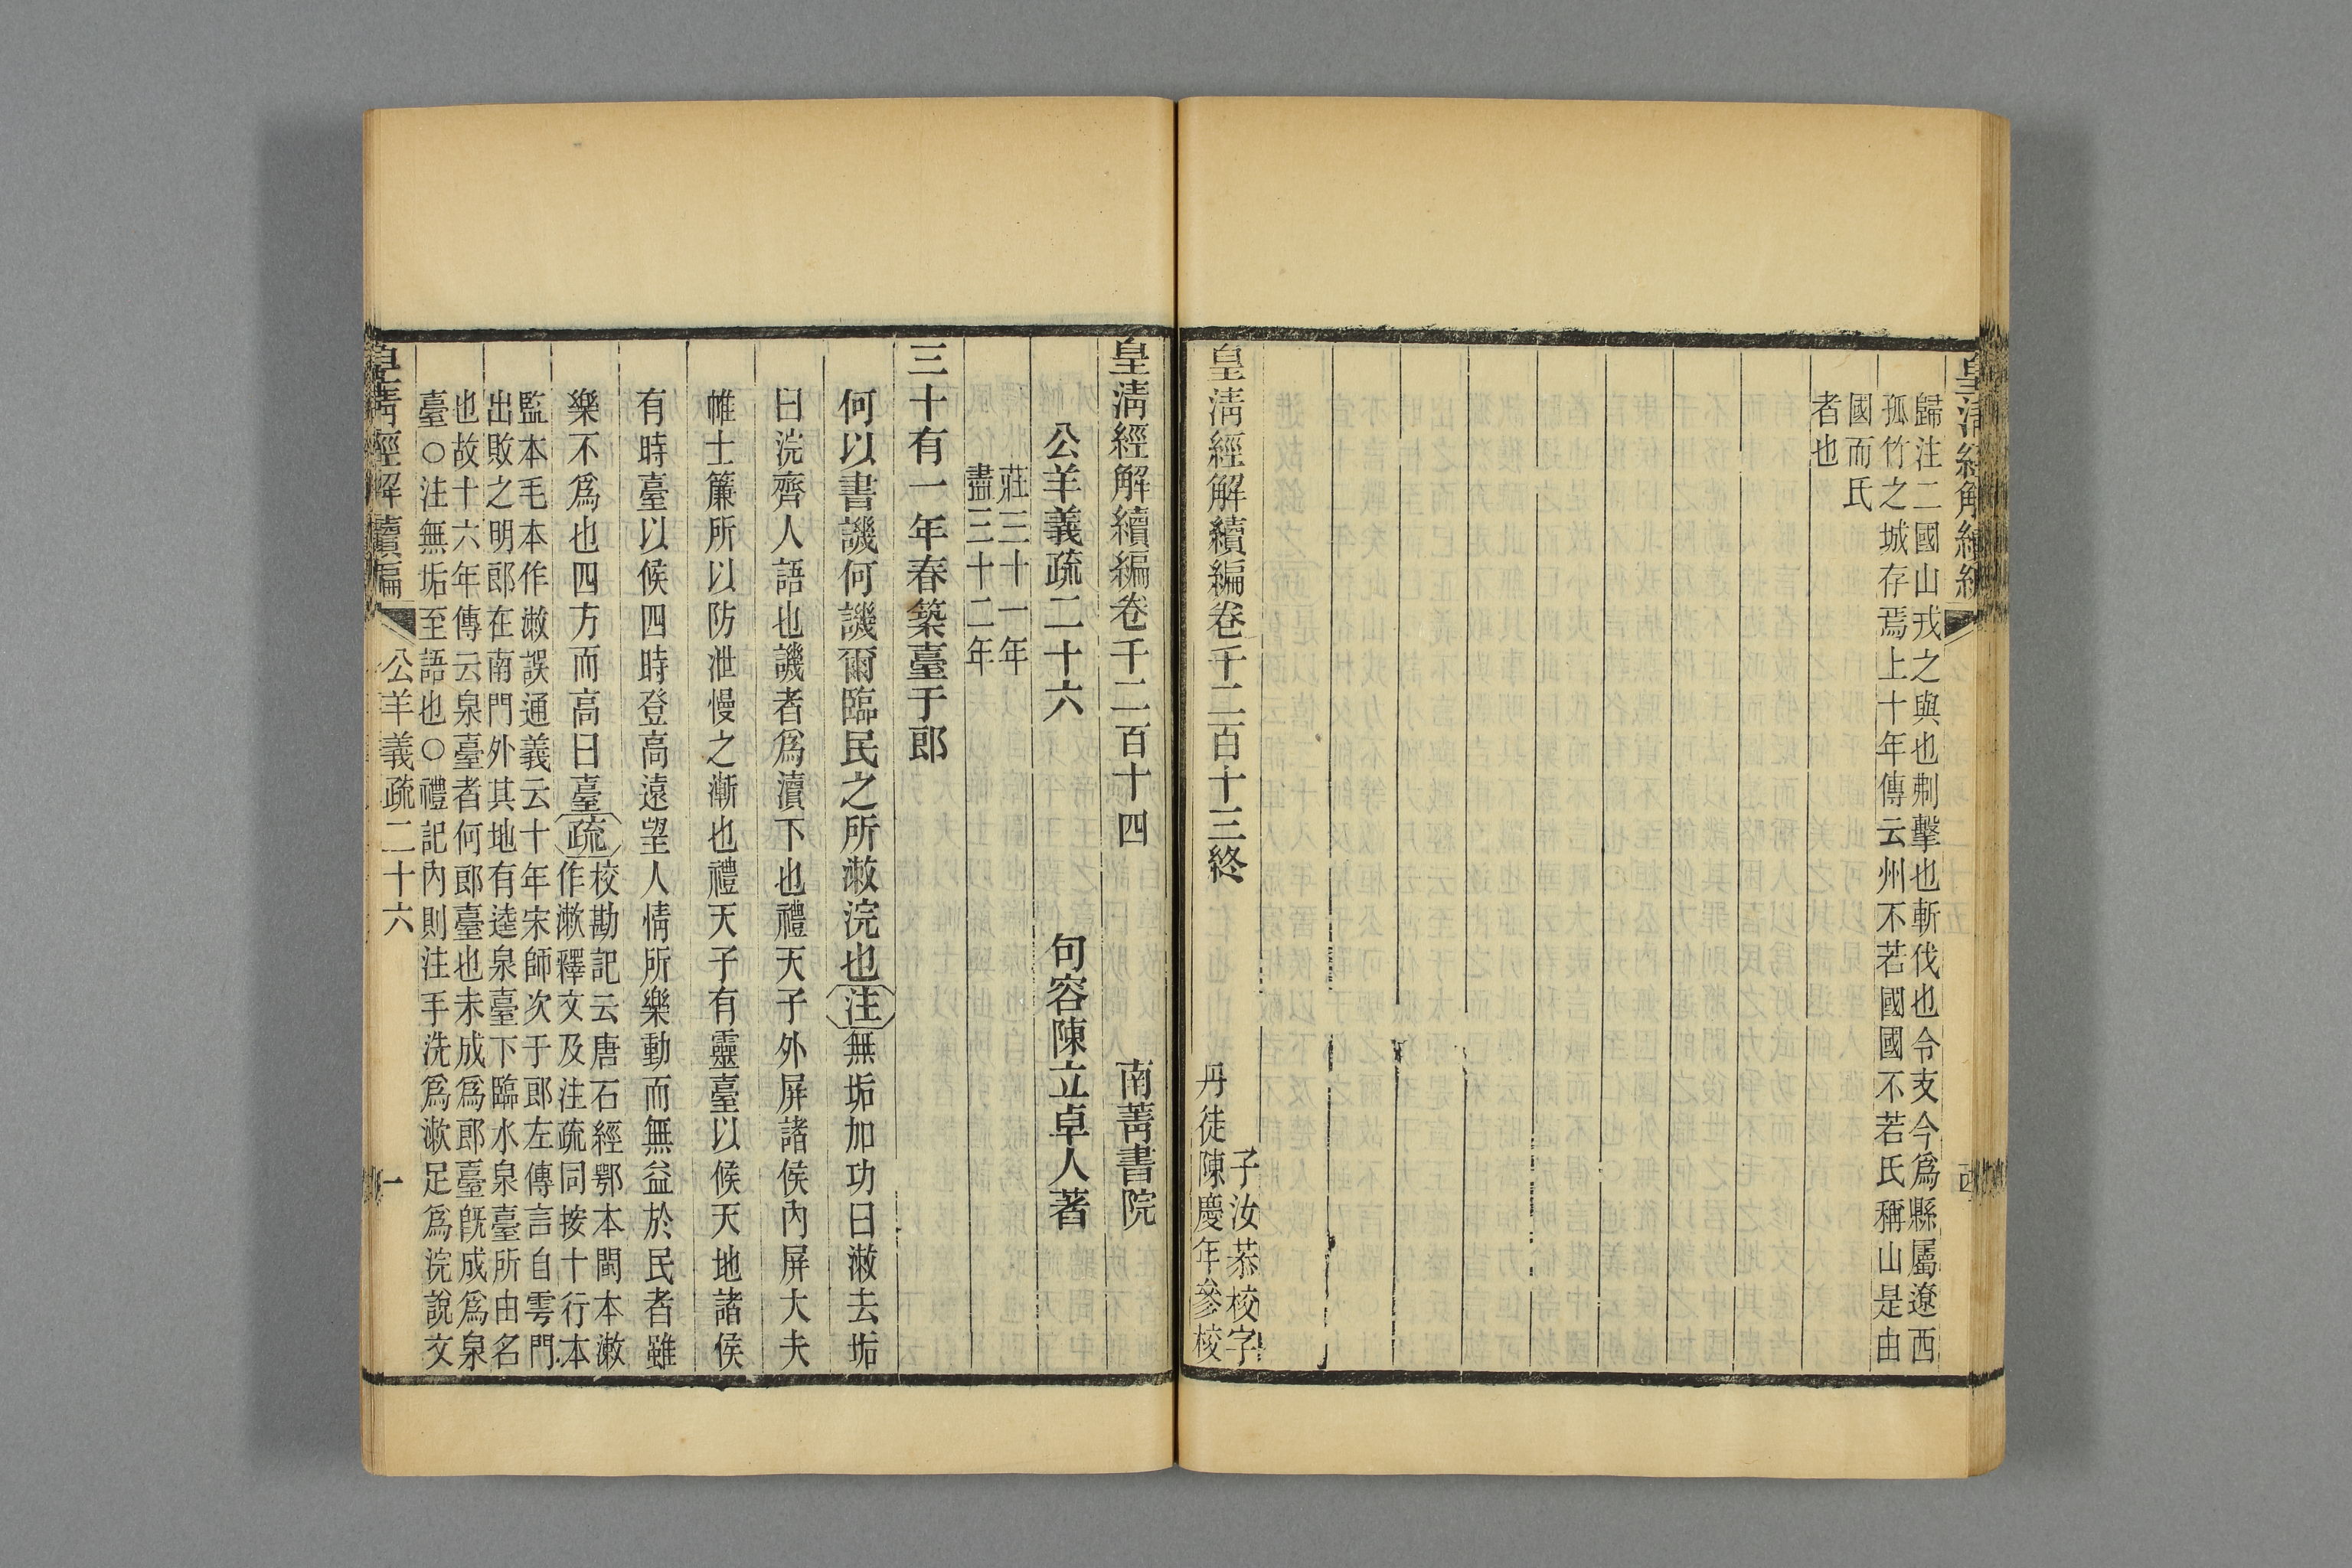 皇清經解續編
歸注二國山戎之與也刜擊也斬伐也令支今爲縣屬遼西
孤竹之城存焉上十年傳云州不若國國不若氏稱山是由
國而氏
者也
皇清經解續編卷千二百十三終
子汝恭校字
丹徒陳慶年參校
皇清經解續編卷千二百十四
南菁書院
公羊義疏二十六
句容陳立卓人著
莊三十一年
盡三十二年
三十有一年春築臺于郎
何以書譏何譏爾臨民之所漱浣也注無垢加功曰漱去垢
曰浣齊人語也譏者爲瀆下也禮天子外屏諸侯內屏大夫
帷士簾所以防泄慢之漸也禮天子有靈臺以候天地諸侯
有時臺以候四時登高遠望人情所樂動而無益於民者雖
樂不爲也四方而高曰臺疏校勘記云唐石經鄂本閩本漱
作漱釋文及注疏同按十行本
監本毛本作漱誤通義云十年宋師次于郎左傳言自雩門
出敗之明郎在南門外其地有逵泉臺下臨水泉臺所由名
也故十六年傳云泉臺者何郎臺也未成爲郎臺旣成爲泉
臺○注無垢至語也○禮記內則注手洗爲漱足爲浣說文
皇清經解續編
公羊義疏二十六
一